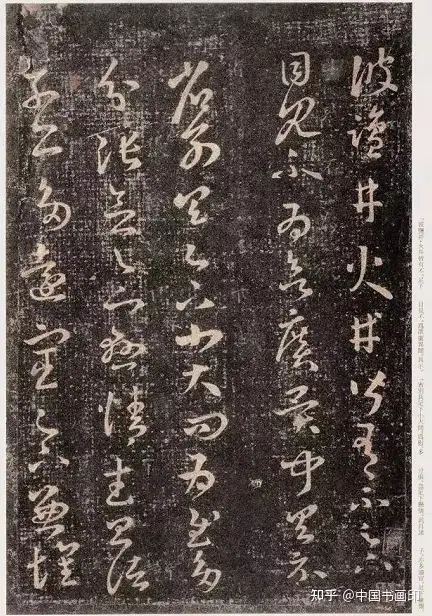 彼鹽井火井皆有不足下
目見不為欲廣異聞具示
省別具足下小大問為慰多
分張念足下懸情武昌諸
子亦多遠宦足下兼懷
知乎 @中国书画印